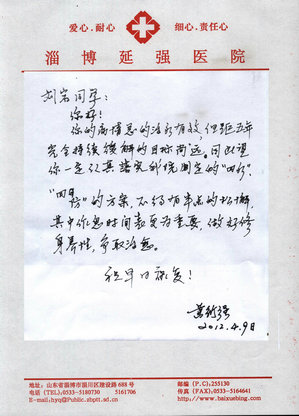 爱心.耐心 细心.责任心
淄博延强医院
刘岩同学:
你好!
你的病情总的治疗有效,但距五年
完全持续缓解的目标尚远。因此望
你一定认真落实我院制定的“四疗”
“四防”的方案,不得有半点的松懈,
其中作息时间表更为重要,做好修
身养性,争取治愈。
祝早日康复!
2012.4.9日
地址:山东省淄博市淄川区建设路688号 邮编(P.C):255130
电话(TEL).0533-5180730 5161706 传真(FAX).0533-5164641
E-mail:hyq@Public.sbptt.sd.cn http://www.baixuebing.com